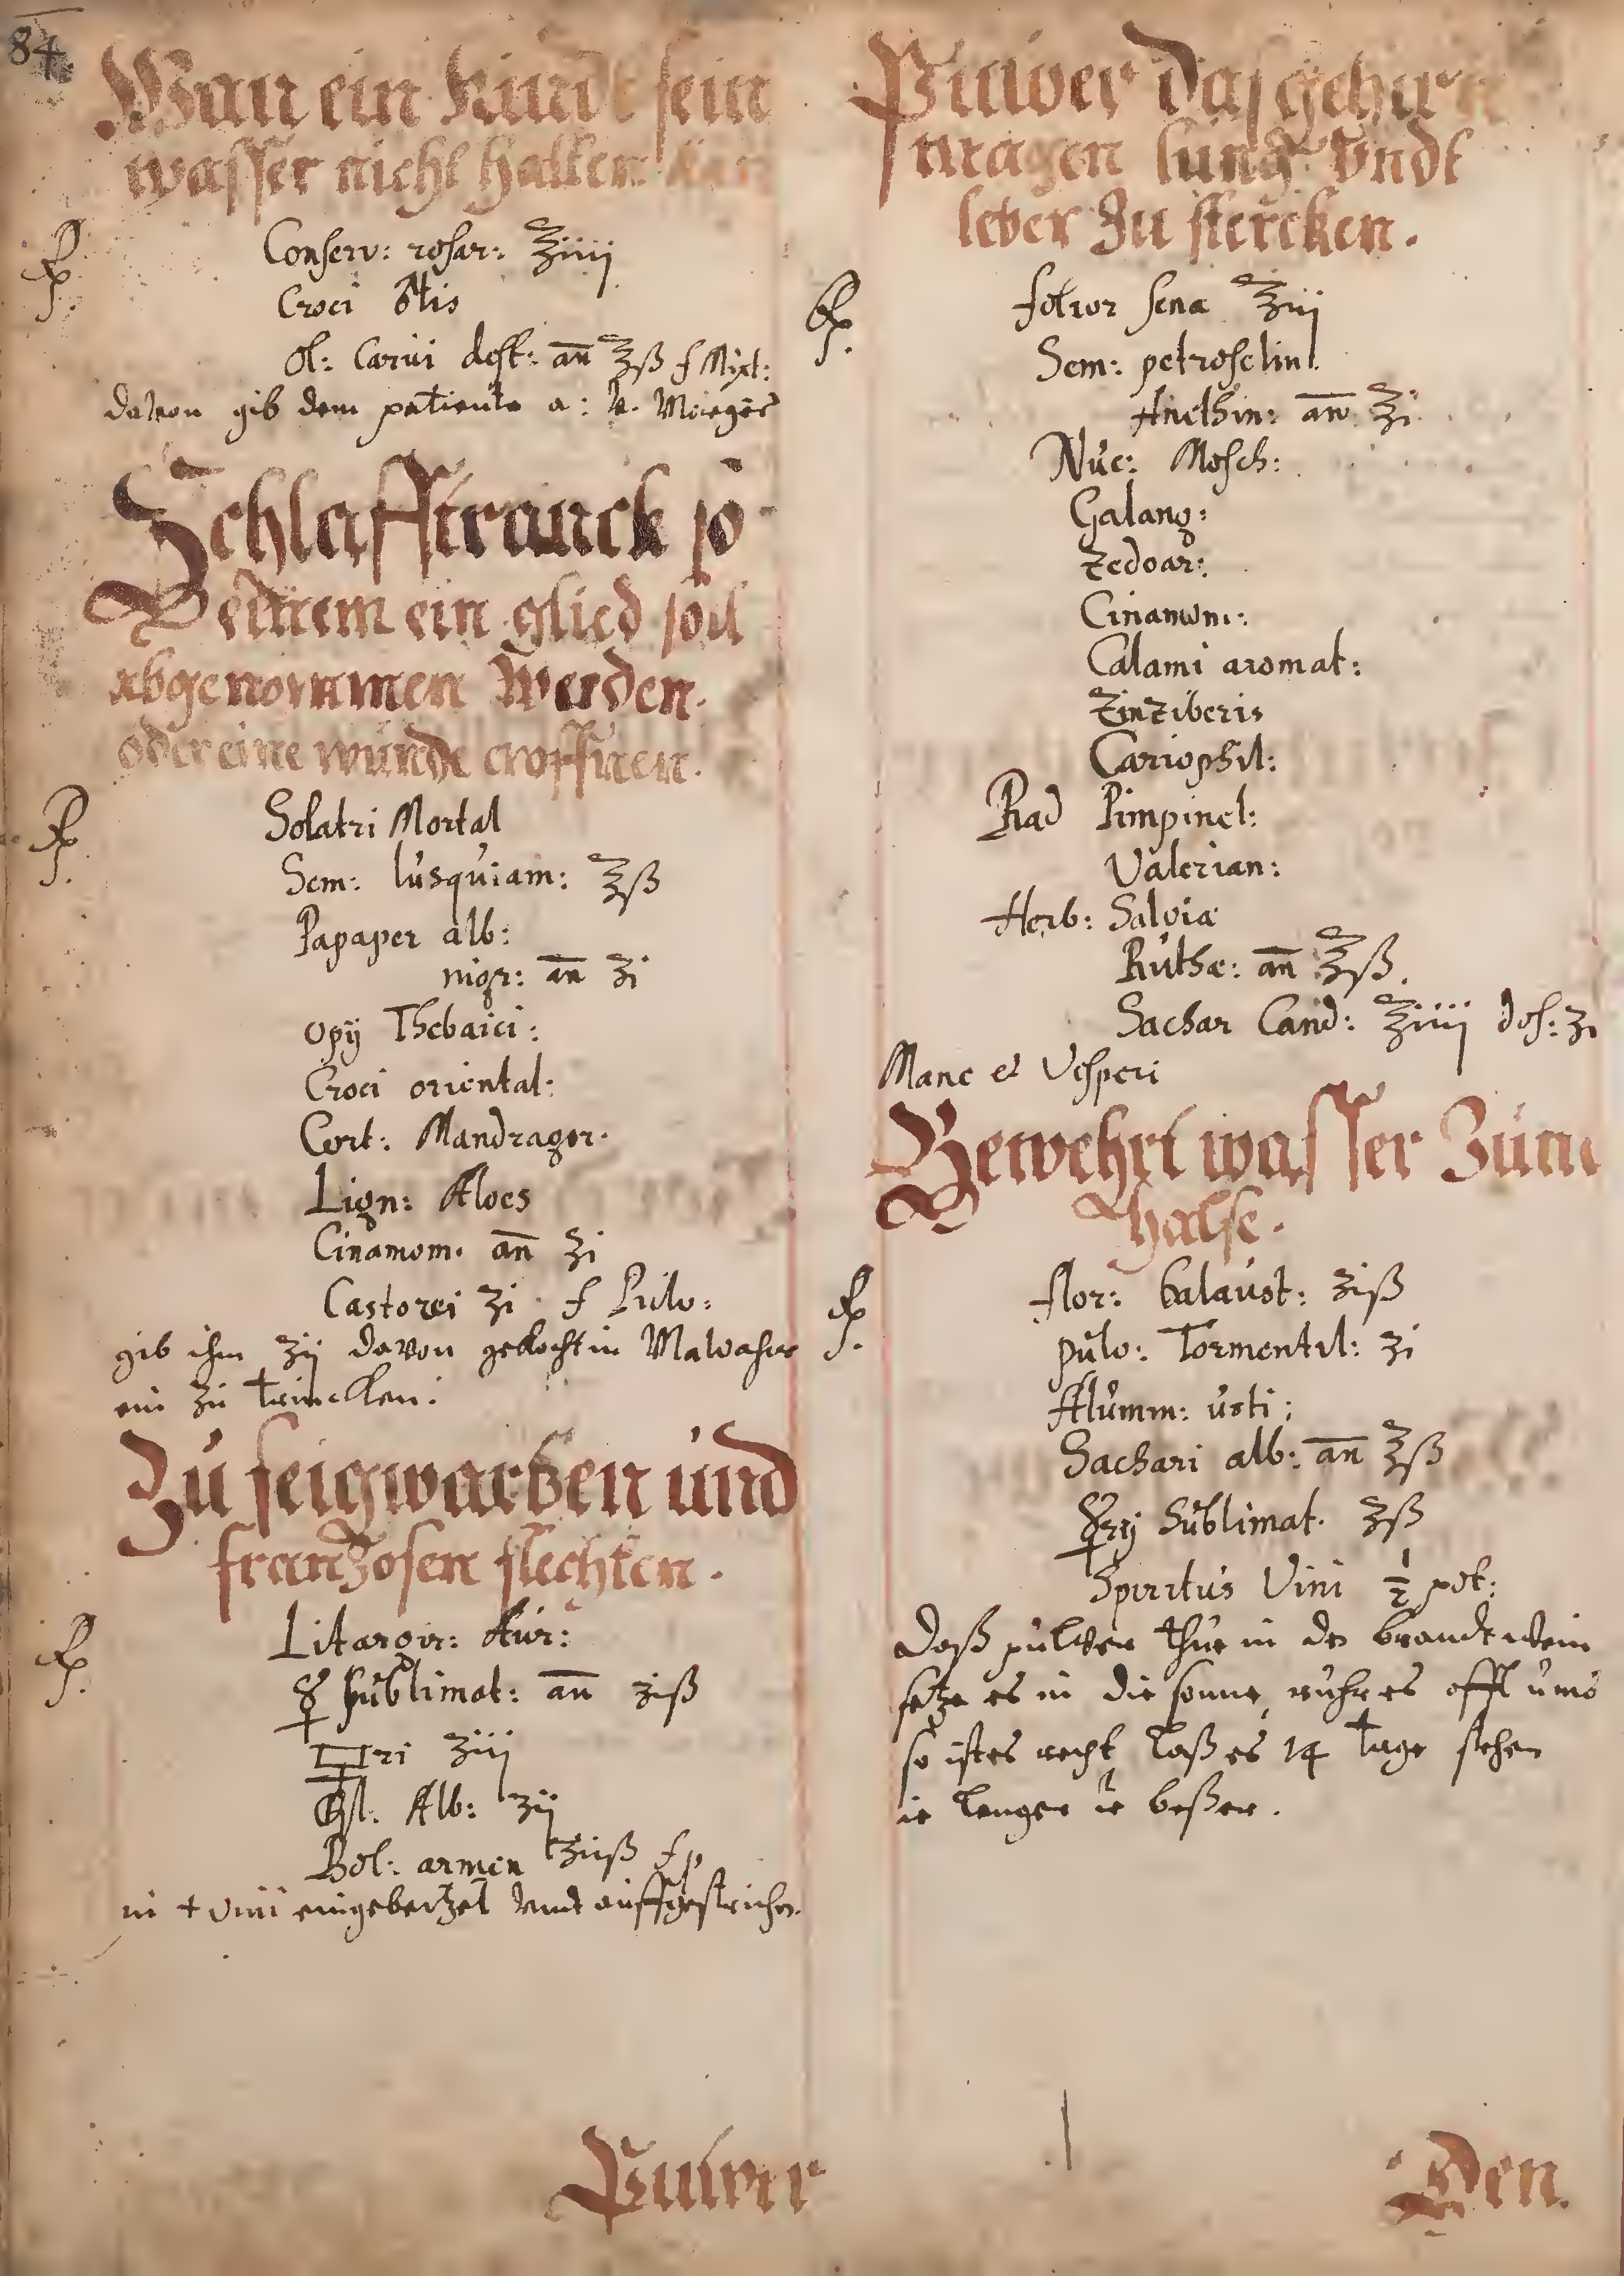 84
Wan ein Kindt sein
wasser nicht halten kan
Rp. Conserv: rosar: ℥iiij
Croci
ol: Carui dest: an ℥ß f Mixt:
davon gib dem patiente a: v. Morgens
Schlafftranck so
einem ein glied soll
abgenommen werden.
oder eine wunde eroffnen.
Rp. Solatri Mortal
Sem: Iusquiam: ℥ß
Papaper alb:
nigr: an ʒi
Opij Thebaici:
Croci oriental:
Cort: Mandragor.
Lign: Aloes
Cinamom. an ʒi
Castorei ʒi. f Pulv:
gib ihm ʒij davon gekocht in Malvasier
ein zu trincken:
Zu feigwartzen und
frantzosen flechten.
Rp. Litargir: Aur:
☿ sublimat: an ʒiß
ri ʒiij
Alb: ʒij
Bol: armen ʒiiß f p
in + vini eingebeitzet vnd auffgestrichen.
Pulver
Pulver das gehirn
magen lung vndt
leber zu stercken.
Rp. folior sena ℥iij
Sem: petroselini
Anethin: an ʒi
Nuc: Mosch:
Galang:
Zedoar:
Cinamom:
Calami aromat:
Zinziberis
Cariophil:
Rad Pimpinel:
Valerian:
Herb: Salviæ
Ruthæ: an ℥ß.
Sachar Cand: ℥iiij dos: ʒi
Mane et Vesperi
Bewehrt wasser Zum
Halse.
Rp. flor: balaust: ʒiß
pulv: Tormentil: ʒi
Alumm: usti:
Sachari alb: an ʒß
☿rij Sublimat. ʒß
Spiritus Vini ½ pot:
Daß pulver thue in den brandtwein
setze es in die sonne, ruhr es offt umb
so ist es recht laß es 14 tage stehen
ie lenger ie beßer.
Den.